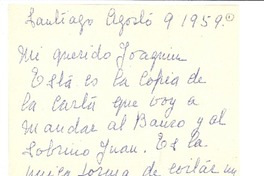 Santiago Agosto 9 1959.
Mi querido Joaquin
Esta es la copia de
la carta que voy a
mandar al Banco y al
Sobrino Juan. Es la
unica forma de evitar un